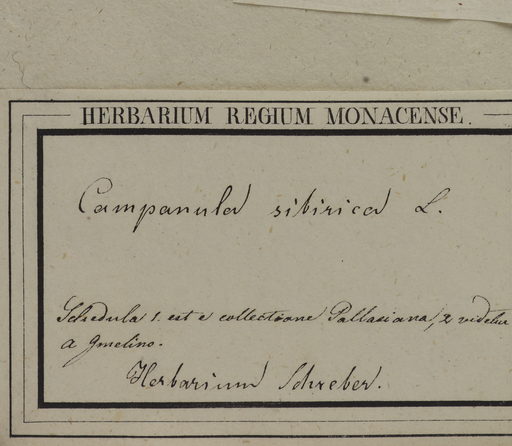 HERBARIUM REGIUM MONACENSE.
Campanula sibirica L.
Schedula 1. est e collectione Pallasiana, 2 videtur
a Gmelino.
Herbarium Schreber.